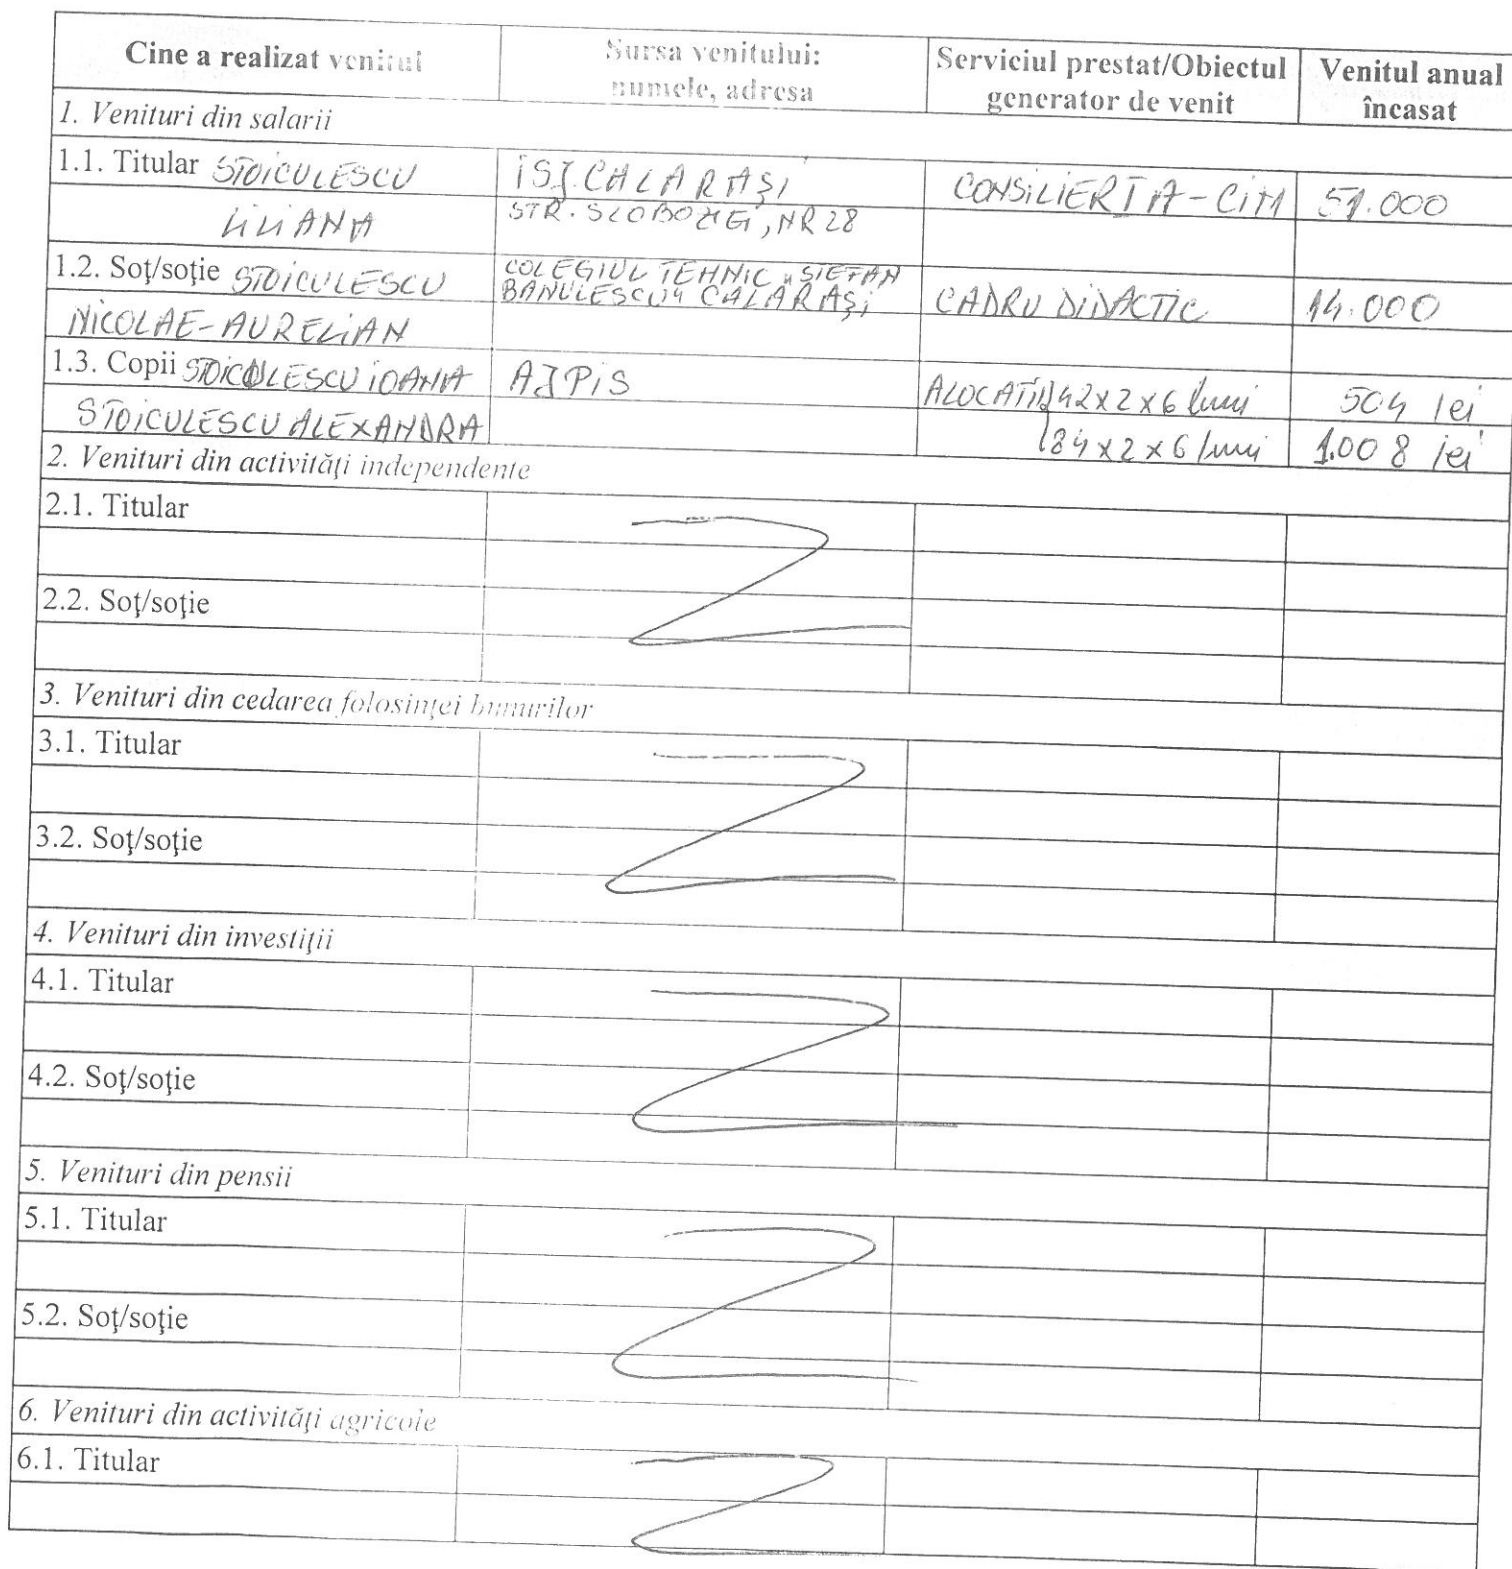 Cine a realizat venitul
Sursa venitului:
numele, adresa
Serviciul prestat/Obiectul
generator de venit
Venitul anual
încasat
1. Venituri din salarii
1.1. Titular STOICULESCU
LILIANA
ISJ CALARAŞI
STR. SLOBOZIEI, NR 28
CONSILIER IA-CIM
51.000
1.2. Soţ/soţie STOICULESCU
NICOLAE-AURELIAN
COLEGIUL TEHNIC „STEFAN
BANULESCU" CALARAŞI
CADRU DIDACTIC
14.000
1.3. Copii STOICULESCU IOANA
STOICULESCU ALEXANDRA
AJPIS
42x2x6 luni
504 lei
84x2x6 luni
1.008 lei
2. Venituri din activităţi independente
2.1. Titular
2.2. Soţ/soţie
3. Venituri din cedarea folosinţei bunurilor
3.1. Titular
3.2. Soţ/soţie
4. Venituri din investiţii
4.1. Titular
4.2. Soţ/soţie
5. Venituri din pensii
5.1. Titular
5.2. Soţ/soţie
6. Venituri din activităţi agricole
6.1. Titular